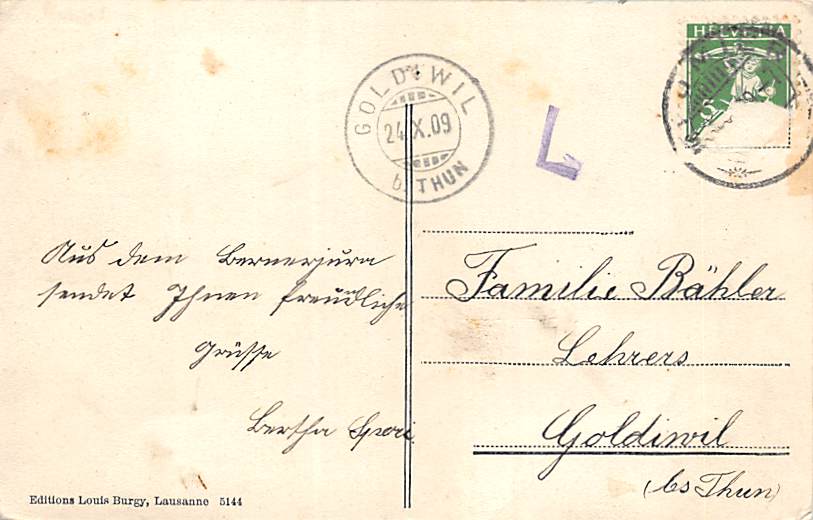 HELVETIA
5
GOLDYWIL
24.X.09
b/THUN
L
Aus dem Bernerjura
sendet Ihnen freundliche
Grüsse
Bertha
Familie Bähler
Lehrers
Goldiwil
(bs Thun)
Editions Louis Burgy, Lausanne 5144